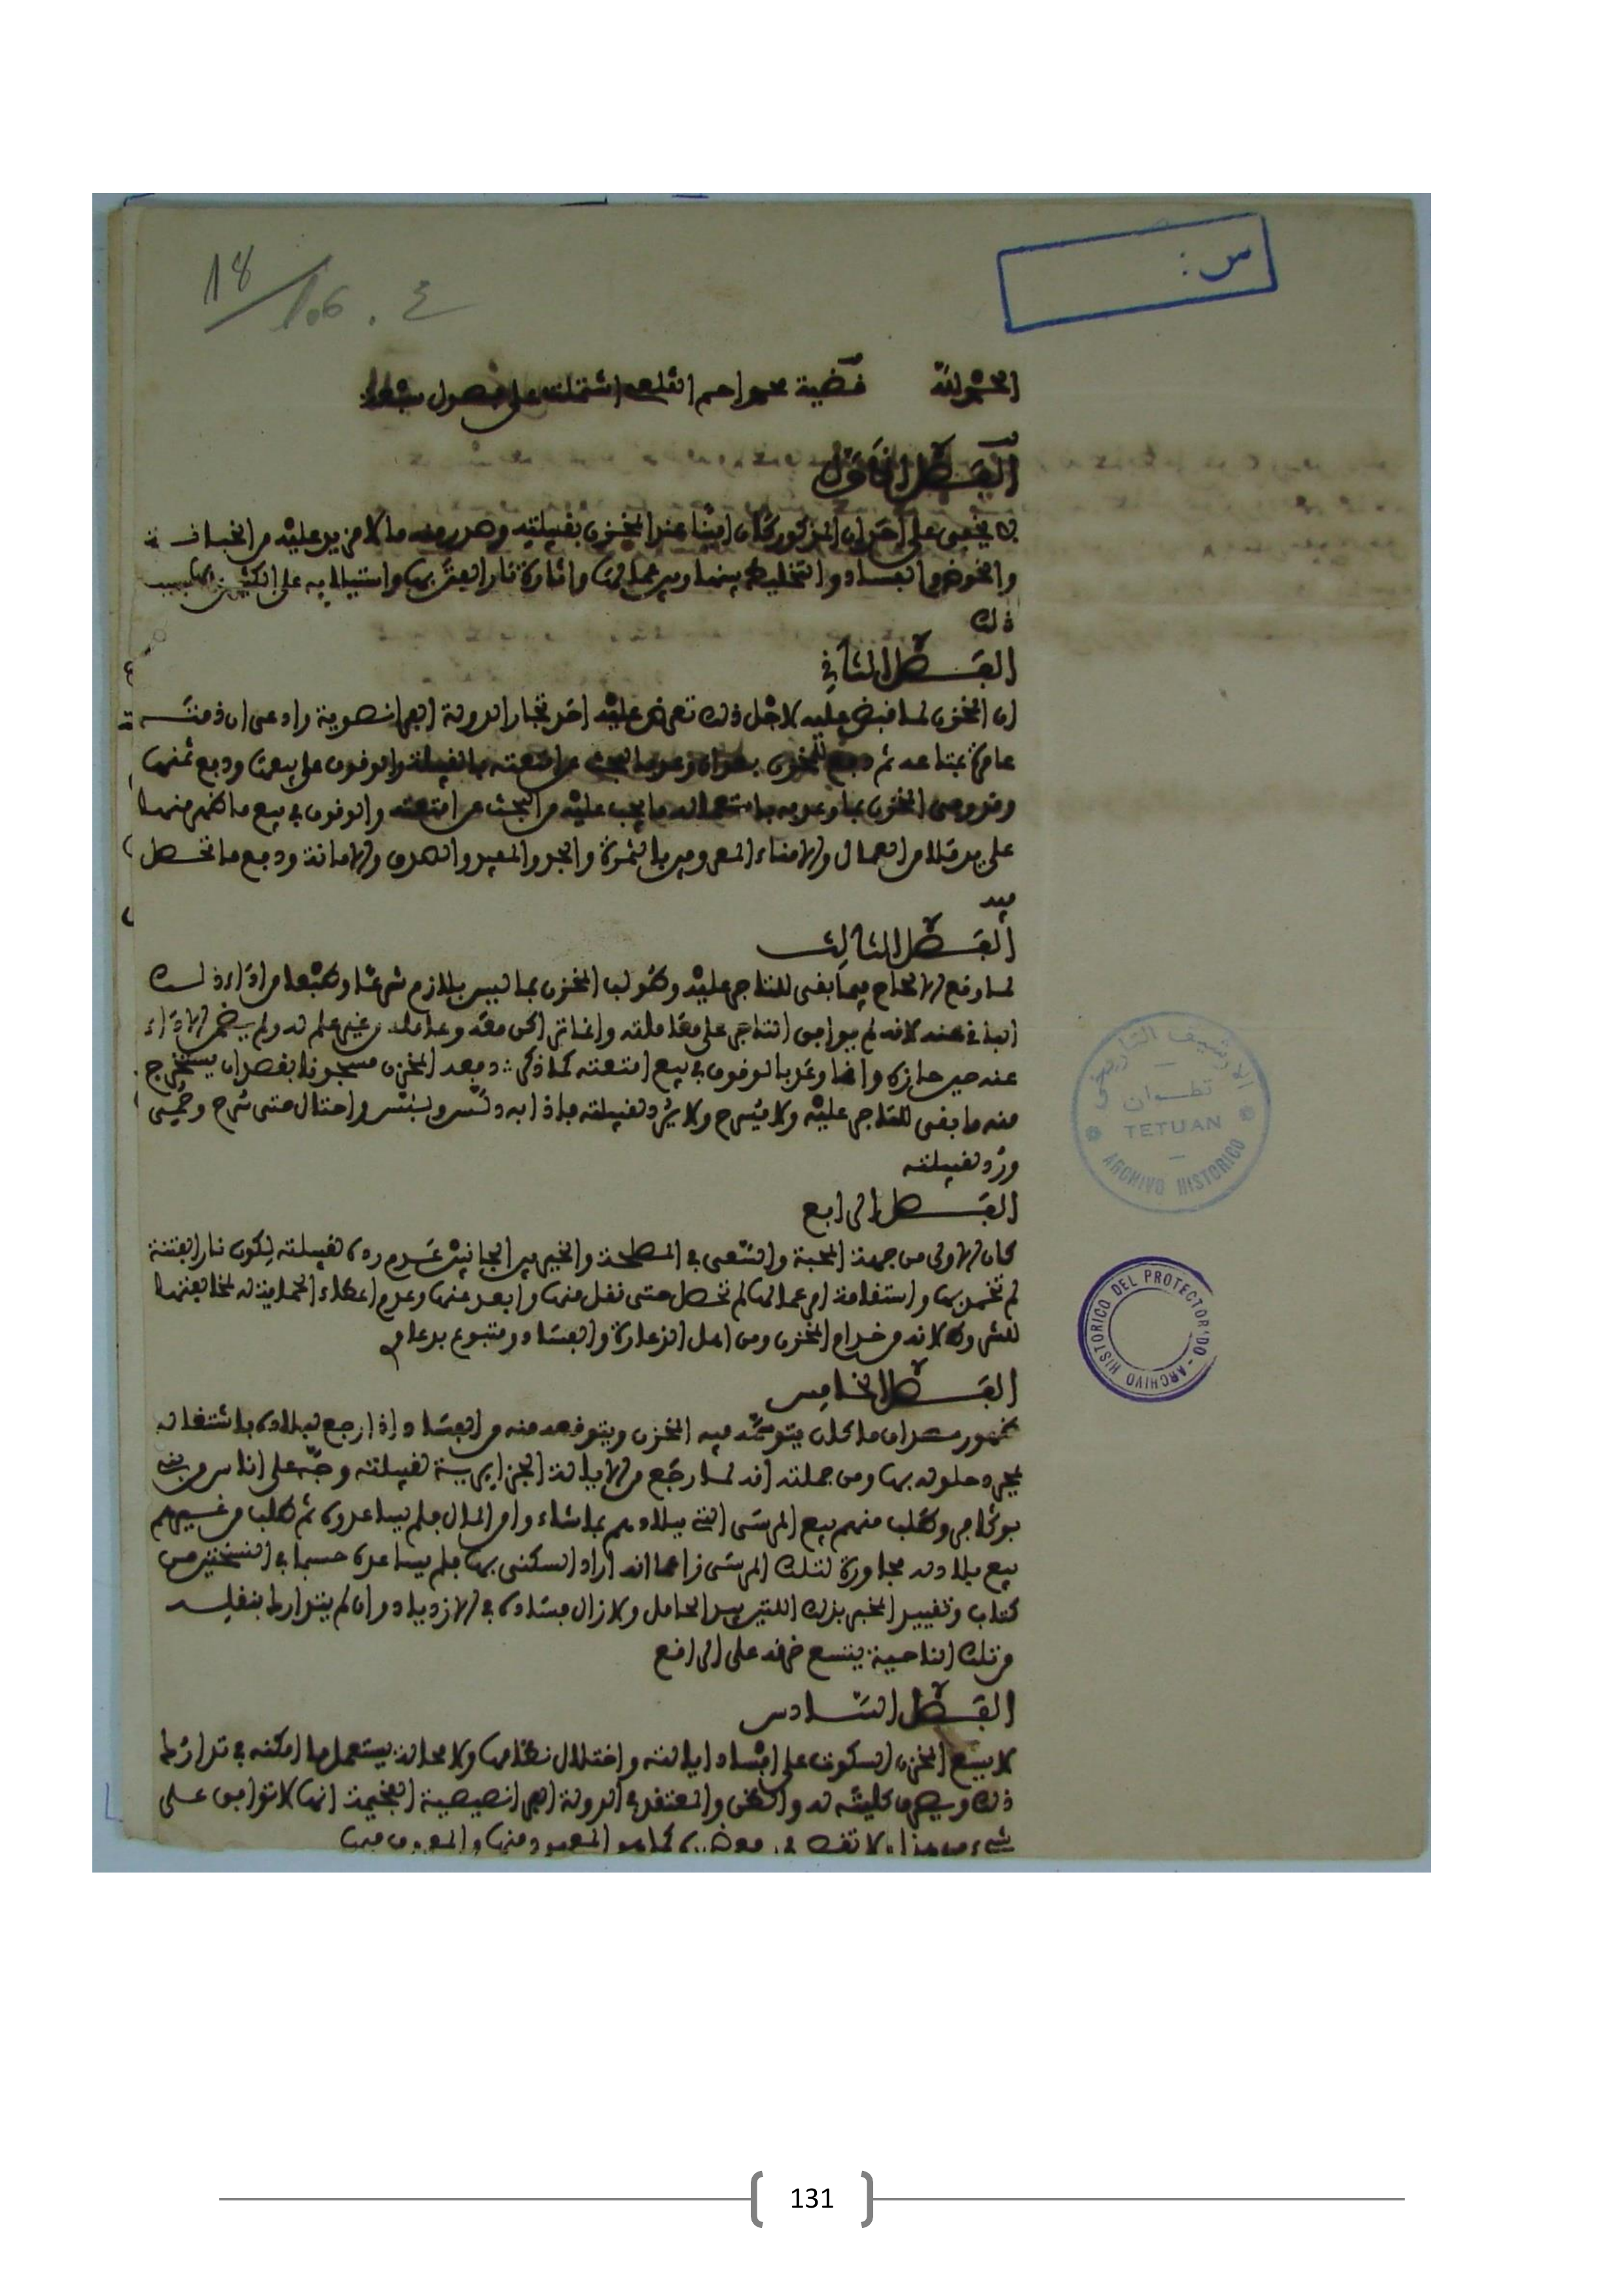 س :
18/106 . ع
الحمد لله قضية محمد احمـ القلعي اشتملت على فصول سبعة
الفصل الاول
لا يخفى على احد ان المذكور كان امينا عند المخزن بقبيلته وصدر منه ما لا مزيد عليه من الخسافة
والخوض والفساد والتخليط بينها وبين عمالها واثارة نار الفتن بها واستيلائه على الكثير
ذلك
الفصل الثاني
ان المخزن لما قبض عليه لاجل ذلك تعرض عليه احد تجار الدولة الفرانصوية وادعى ان ذمتـه
عامرة بمتاعه ثم دفع للمخزن وعد بالبحث عن امتعته بالقبيلة والوقوف على بيعها ودفع ثمنها
وقد وفى المخزن بما وعد به ما يجب عليه من البحث عن امتعته والوقوف في بيع ما ظهر منها
على يد من العمال والامناء المعروفين بالثمرة والجد والصدق والامانة ودفع ما تحصل
فيه
الفصل الثالث
لما وقع الالحاح فيما بقى للتاجر عليه وطولب المخزن بما ليس بلازم شرعا وطبعا من اداء ذلك
الباقي عنه لانه لم يوافق التاجر على معاملته وانما تراكن معه وعامله من غير علم له ولم يضمن الاداء
عنه حين حازه وانما وعد بالوقوف في بيع امتعته كما ذكر دفعه المخزن مسجونا بقصد ان يستخرج
منه ما بقى للتاجر عليه ولا يسرح ولا يرد لقبيلته فاذا به واحتال حتى سرح وحمي
ورد لقبيلته
الفصل الرابع
كان الاولى من جهة المحبة والسعي في المصلحة والخير بين الجانبين عدم رده لقبيلته لكون نار الفتنة
لم تخمد بها واستقامة امر عمالها لم تحصل حتى نقل منها وابعد عنها وعدم اعطاء الحماية له لمخالفتها
للشروط لانه من خدام المخزن ومن اهل الزعارة والفساد ومتبوع بدعاو
الفصل الخامس
ظهور مصداق ما كان يتوهمه فيه المخزن ويتوقعه منه من الفساد اذا رجع لبلاده باشتغاله
بمجرد حلوله بها ومن جملته انه لما رجع من الايالة الجزايرية لقبيلته وجه على اناس من بني
بوگافر وطلب منهم بيع المرسى التي ببلادهم بما شاء وا من المال فلم يساعدوه ثم طلب من غيرهم
بيع بلاد له مجاورة لتلك المرسى زاعما انه اراد السكنى بها فلم يساعده حسبما في النسختين من
كتاب وتقييد المخبر بذلك اللتين بيد الحامل ولا زال فساده في الازدياد وان لم يتدارك بنقله
من تلك الناحية يتسع خرقه على الراقع
الفصل السادس
لا يسع المخزن السكوت على افساد ايالته واختلال نظامها ولا محالة يستعمل ما امكنه في تدارك
ذلك والظن والمعتقد في الدولة الفرانصيصية الفخيمة انها لا توافق على
شيء من هذا ولا تقف كما هو المعهود منها والمعروف فيها
الارشيف التاريخي
تطوان
TETUAN
ARCHIVO HISTORICO
ARCHIVO HISTORICO DEL PROTECTORADO
131